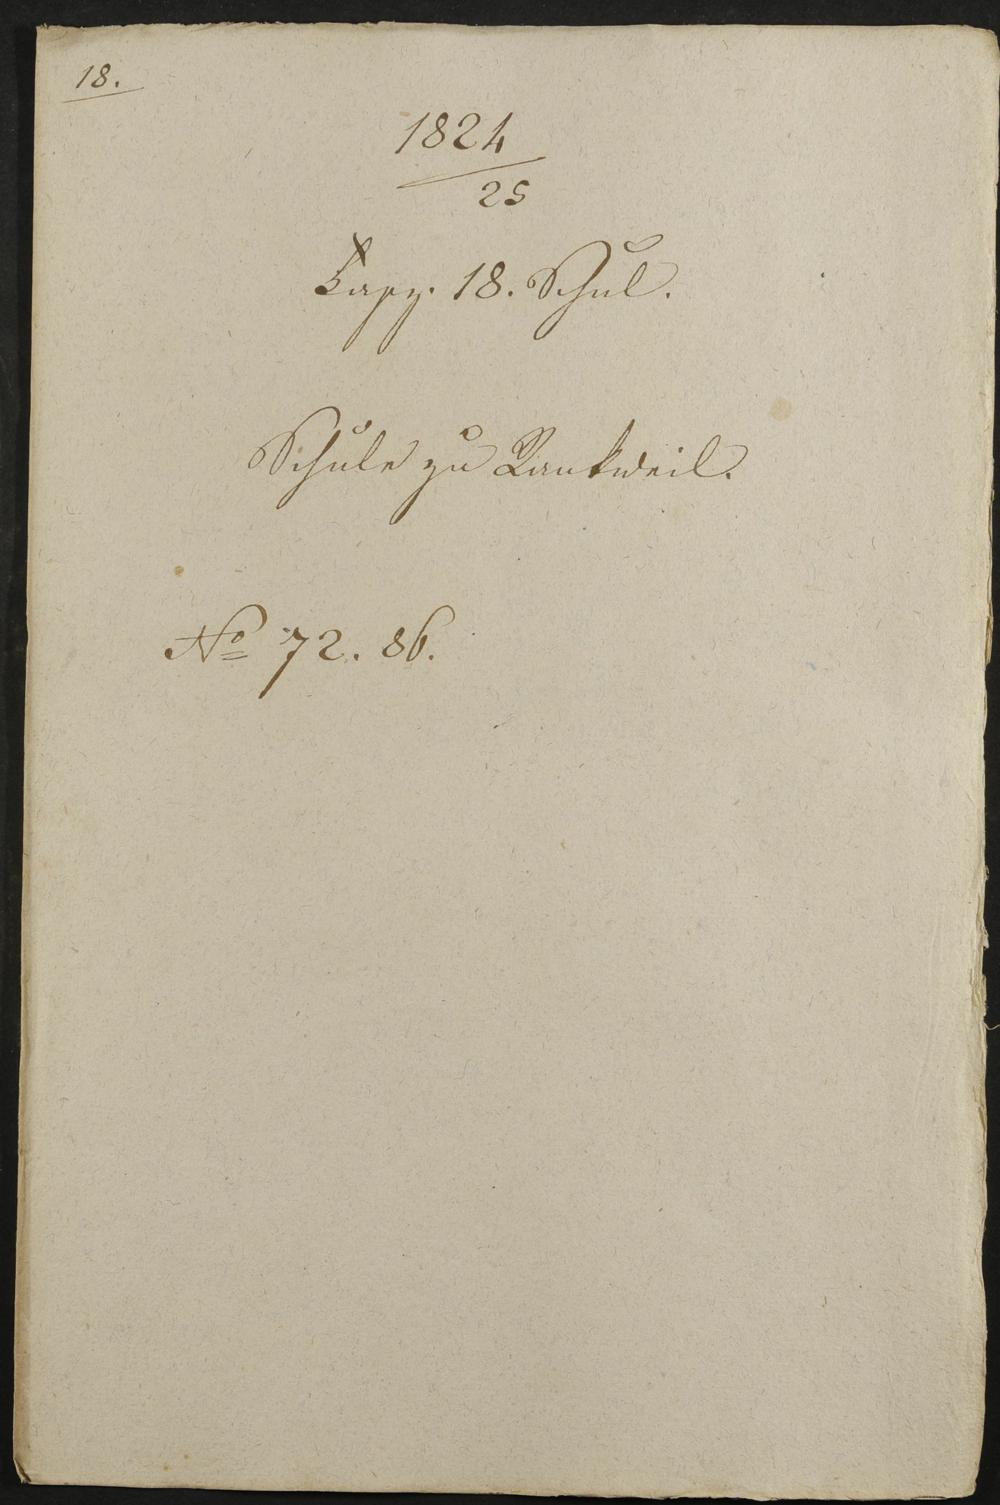 18.
1824
25
Kapz. 18. Schul.
Schule zu Rankweil.
No 72. 86.